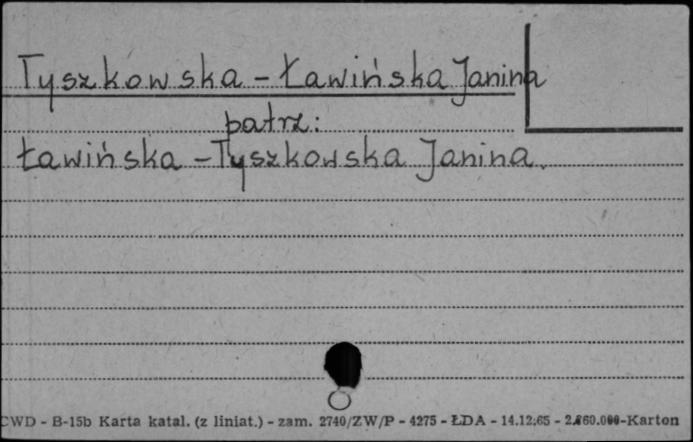 Tyszkowska - Ławińska Janina
patrz:
Ławińska - Tyszkowska Janina.
CWD - B-15b Karta katal. (z liniat.) - zam. 2740/ZW/P - 4275 - ŁDA - 14.12.65 - 2.860.000-Karton